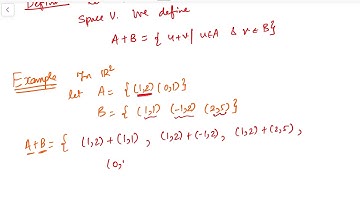 Define
Space V. We define
A+B = { u+v | u∈A & v∈B}
Example In ℝ²
let A = { (1,2) (0,1)}
B = { (1,1) (-1,2) (2,5)}
A+B = { (1,2)+(1,1) , (1,2)+(-1,2) , (1,2)+(2,5) ,
(0,